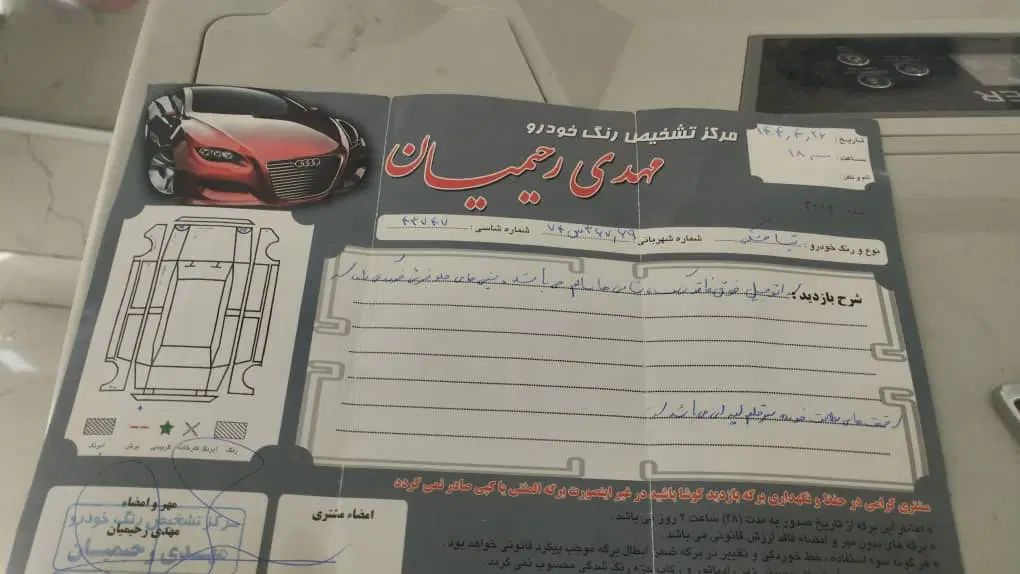 مرکز تشخیص رنگ خودرو
مهدی رحیمیان
تاریخ:
ساعت: ۱۸
نام و نام
نوع و رنگ خودرو: تیبا مشکی شماره شهربانی شماره شاسی:
شرح بازدید:
اتومبیل فوق فاقد رنگ شاسی ها سالم می باشد
رنگ
ابرنگ کارخانه
گریس
برش
ابرنگ
مهر و امضاء
مهدی رحیمیان
مرکز تشخیص رنگ خودرو
مهدی رحیمیان
امضاء مشتری
مشتری گرامی در حفظ و نگهداری برگه بازدید کوشا باشید در غیر اینصورت برگه المثنی یا کپی صادر نمی گردد
اعتبار این برگه از تاریخ صدور به مدت (۴۸) ساعت ۲ روز می باشد.
برگه های بدون مهر و امضاء فاقد ارزش قانونی می باشد.
هر گونه سوء استفاده، خط خوردگی و تغییر در برگه ضمن ابطال برگه موجب پیگرد قانونی خواهد بود.
رادیاتور و رکاب جزء رنگ شدگی محسوب نمی گردد